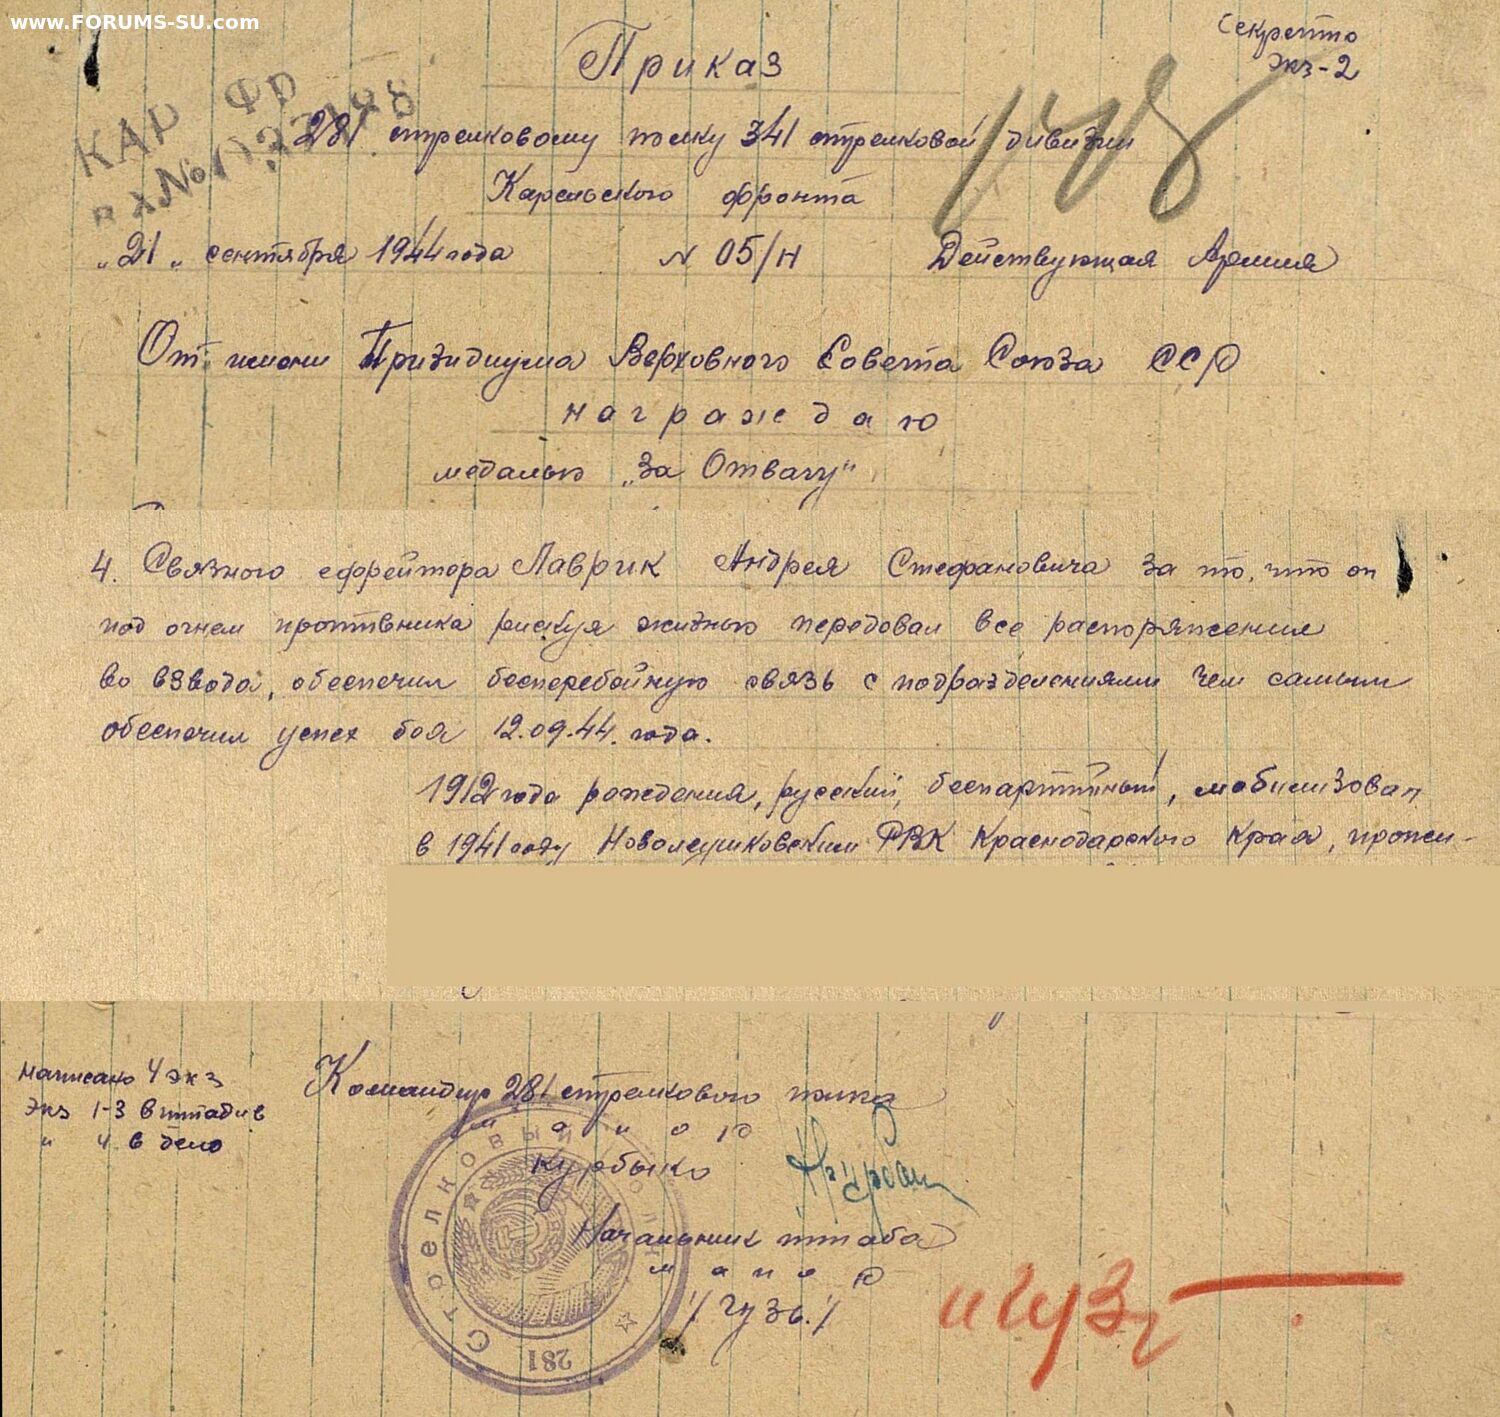 www.FORUMS-SU.com
Секретно
Экз-2
Приказ
КАР ФР
281 стрелковому полку 341 стрелковой дивизии
Карельского фронта
"21" сентября 1944 года № 05/н Действующая Армия
От имени Призидиума Верховного Совета Союза ССР
награждаю
медалью "За Отвагу"
4. Связного ефрейтора Лаврик Андрея Стефановича за то, что он
под огнем противника рискуя жизнью передовал все распоряжения
во взвода, обеспечил бесперебойную связь с подразделениями чем самым
обеспечил успех боя 12.09.44. года.
1912 года рождения, русский, беспартийный, мобилизован
в 1941 году Новолеушковским РВК Краснодарского края, прожи-
Написано 4 экз
Экз 1-3 в штадив
" 4 в дело
Командир 281 стрелкового полка
майор
Курбыко
Начальник штаба
майор
/Гузь./
281 Стрелковый полк